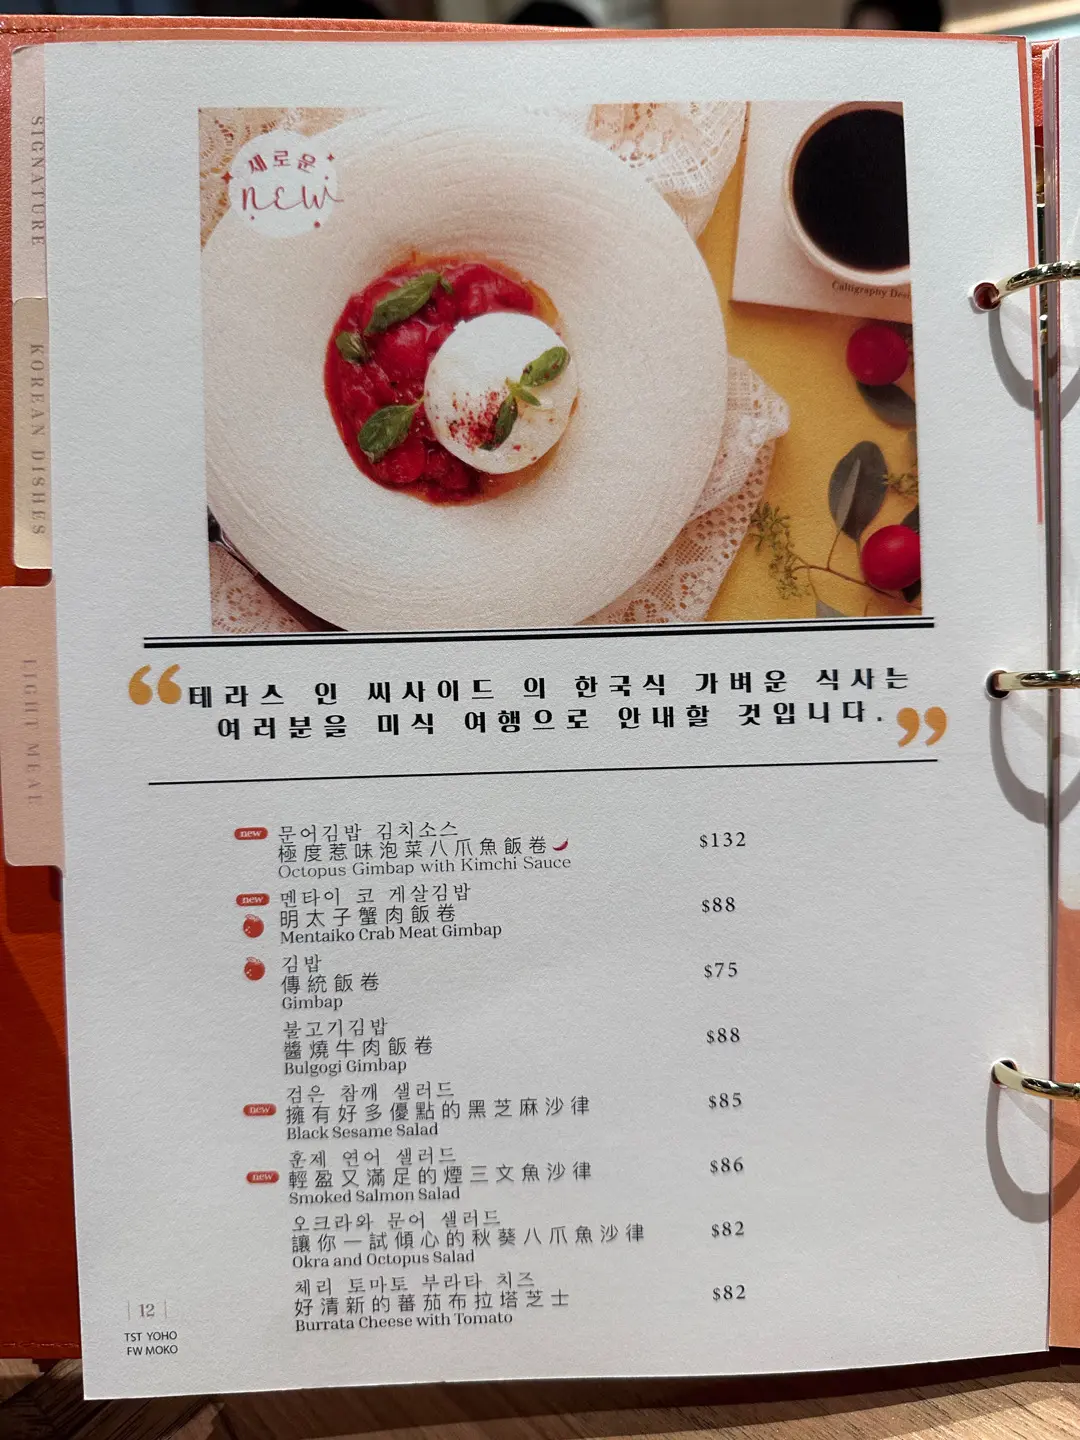 SIGNATURE
KOREAN DISHES
LIGHT MEAL
새로운
new
Calligraphy
“테라스 인 씨사이드 의 한국식 가벼운 식사는
여러분을 미식 여행으로 안내할 것입니다.”
new 문어김밥 김치소스
極度惹味泡菜八爪魚飯卷 $132
Octopus Gimbap with Kimchi Sauce
new 멘타이 코 게살김밥
明太子蟹肉飯卷 $88
Mentaiko Crab Meat Gimbap
김밥
傳統飯卷 $75
Gimbap
불고기김밥
醬燒牛肉飯卷 $88
Bulgogi Gimbap
검은 참깨 샐러드
new 擁有好多優點的黑芝麻沙律 $85
Black Sesame Salad
훈제 연어 샐러드
new 輕盈又滿足的煙三文魚沙律 $86
Smoked Salmon Salad
오크라와 문어 샐러드
讓你一試傾心的秋葵八爪魚沙律 $82
Okra and Octopus Salad
체리 토마토 부라타 치즈
好清新的蕃茄布拉塔芝士 $82
Burrata Cheese with Tomato
12
TST YOHO
FW MOKO